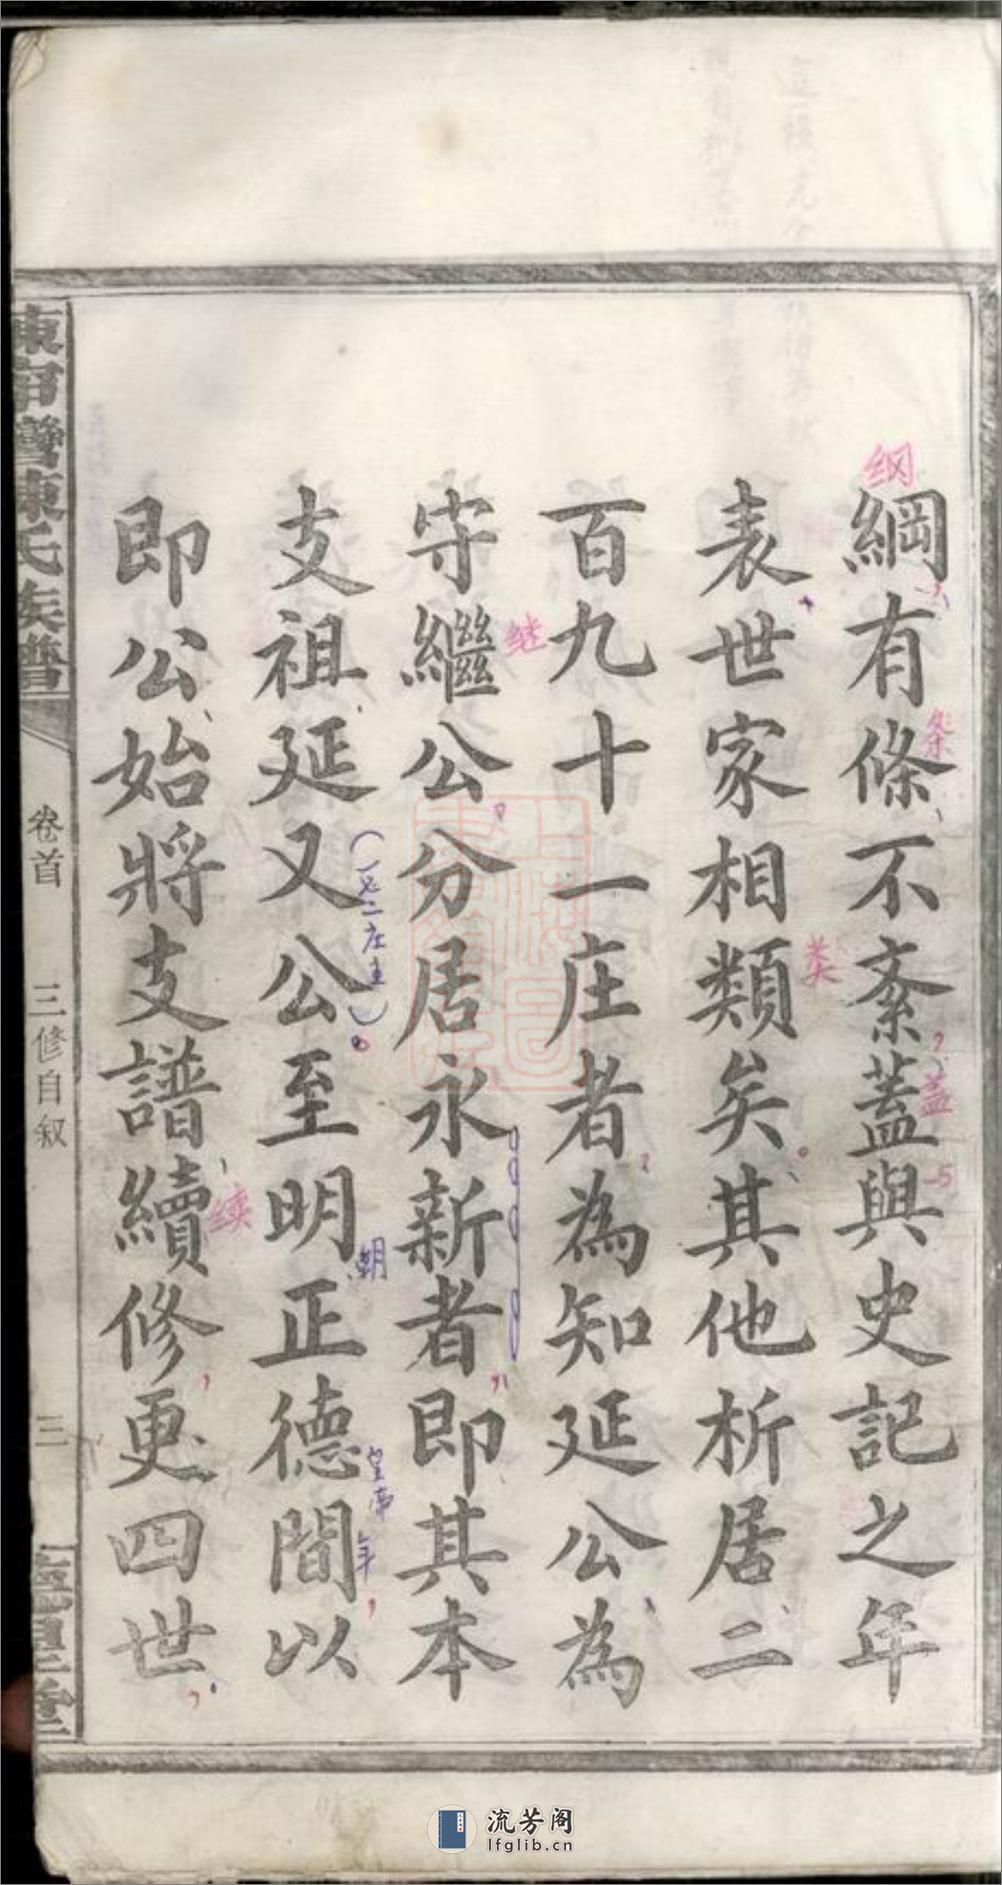 綱有條不紊蓋與史記之年
表世家相類矣其他析居二
百九十一庄者為知延公為
守繼公分居永新者即其本
支祖延又公至明正德間以
即公始將支譜續修更四世
纲
条
盖
与
类
继
(一七二庄主)
朝
皇帝
年
续
陳氏族譜
卷首
三修自叙
三
流芳阁
lfglib.cn